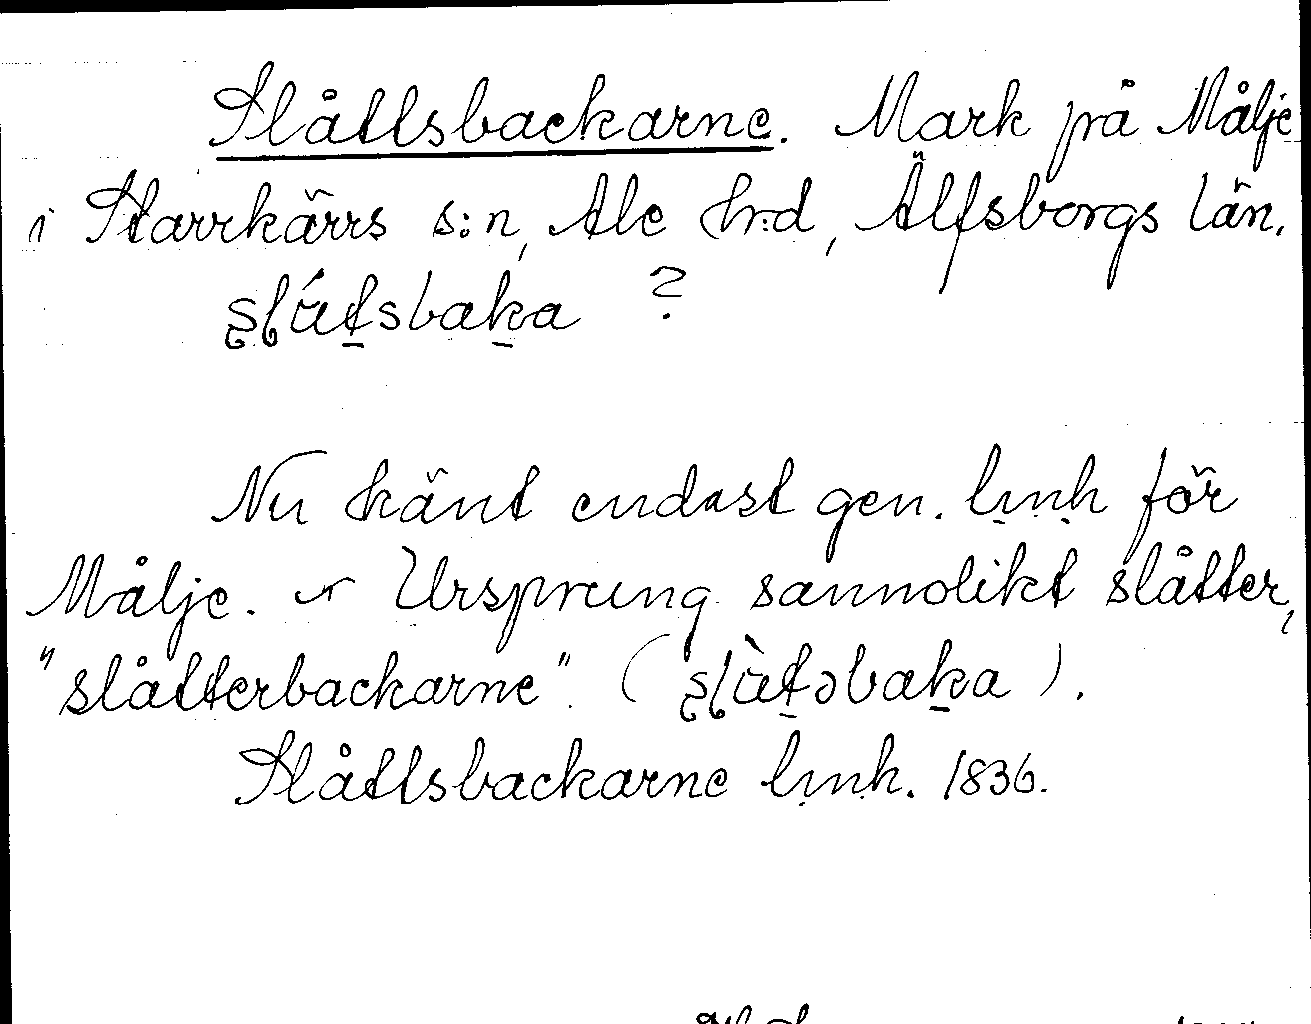 Slåttsbackarne. Mark på Målje
i Starrkärrs s:n, Ale hrd, Älfsborgs län.
?
Nu känt endast gen. lmh för
Målje. Ursprung sannolikt slåtter,
"slåtterbackarne". ( ).
Slåttsbackarne lmh. 1836.